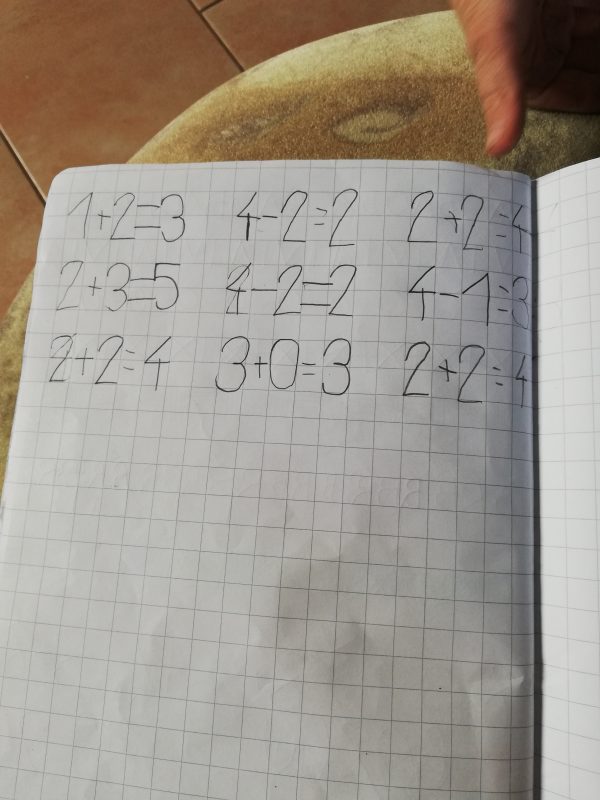 1+2=3 4-2=2 2+2=4
2+3=5 4-2=2 4-1=3
2+2=4 3+0=3 2+2=4